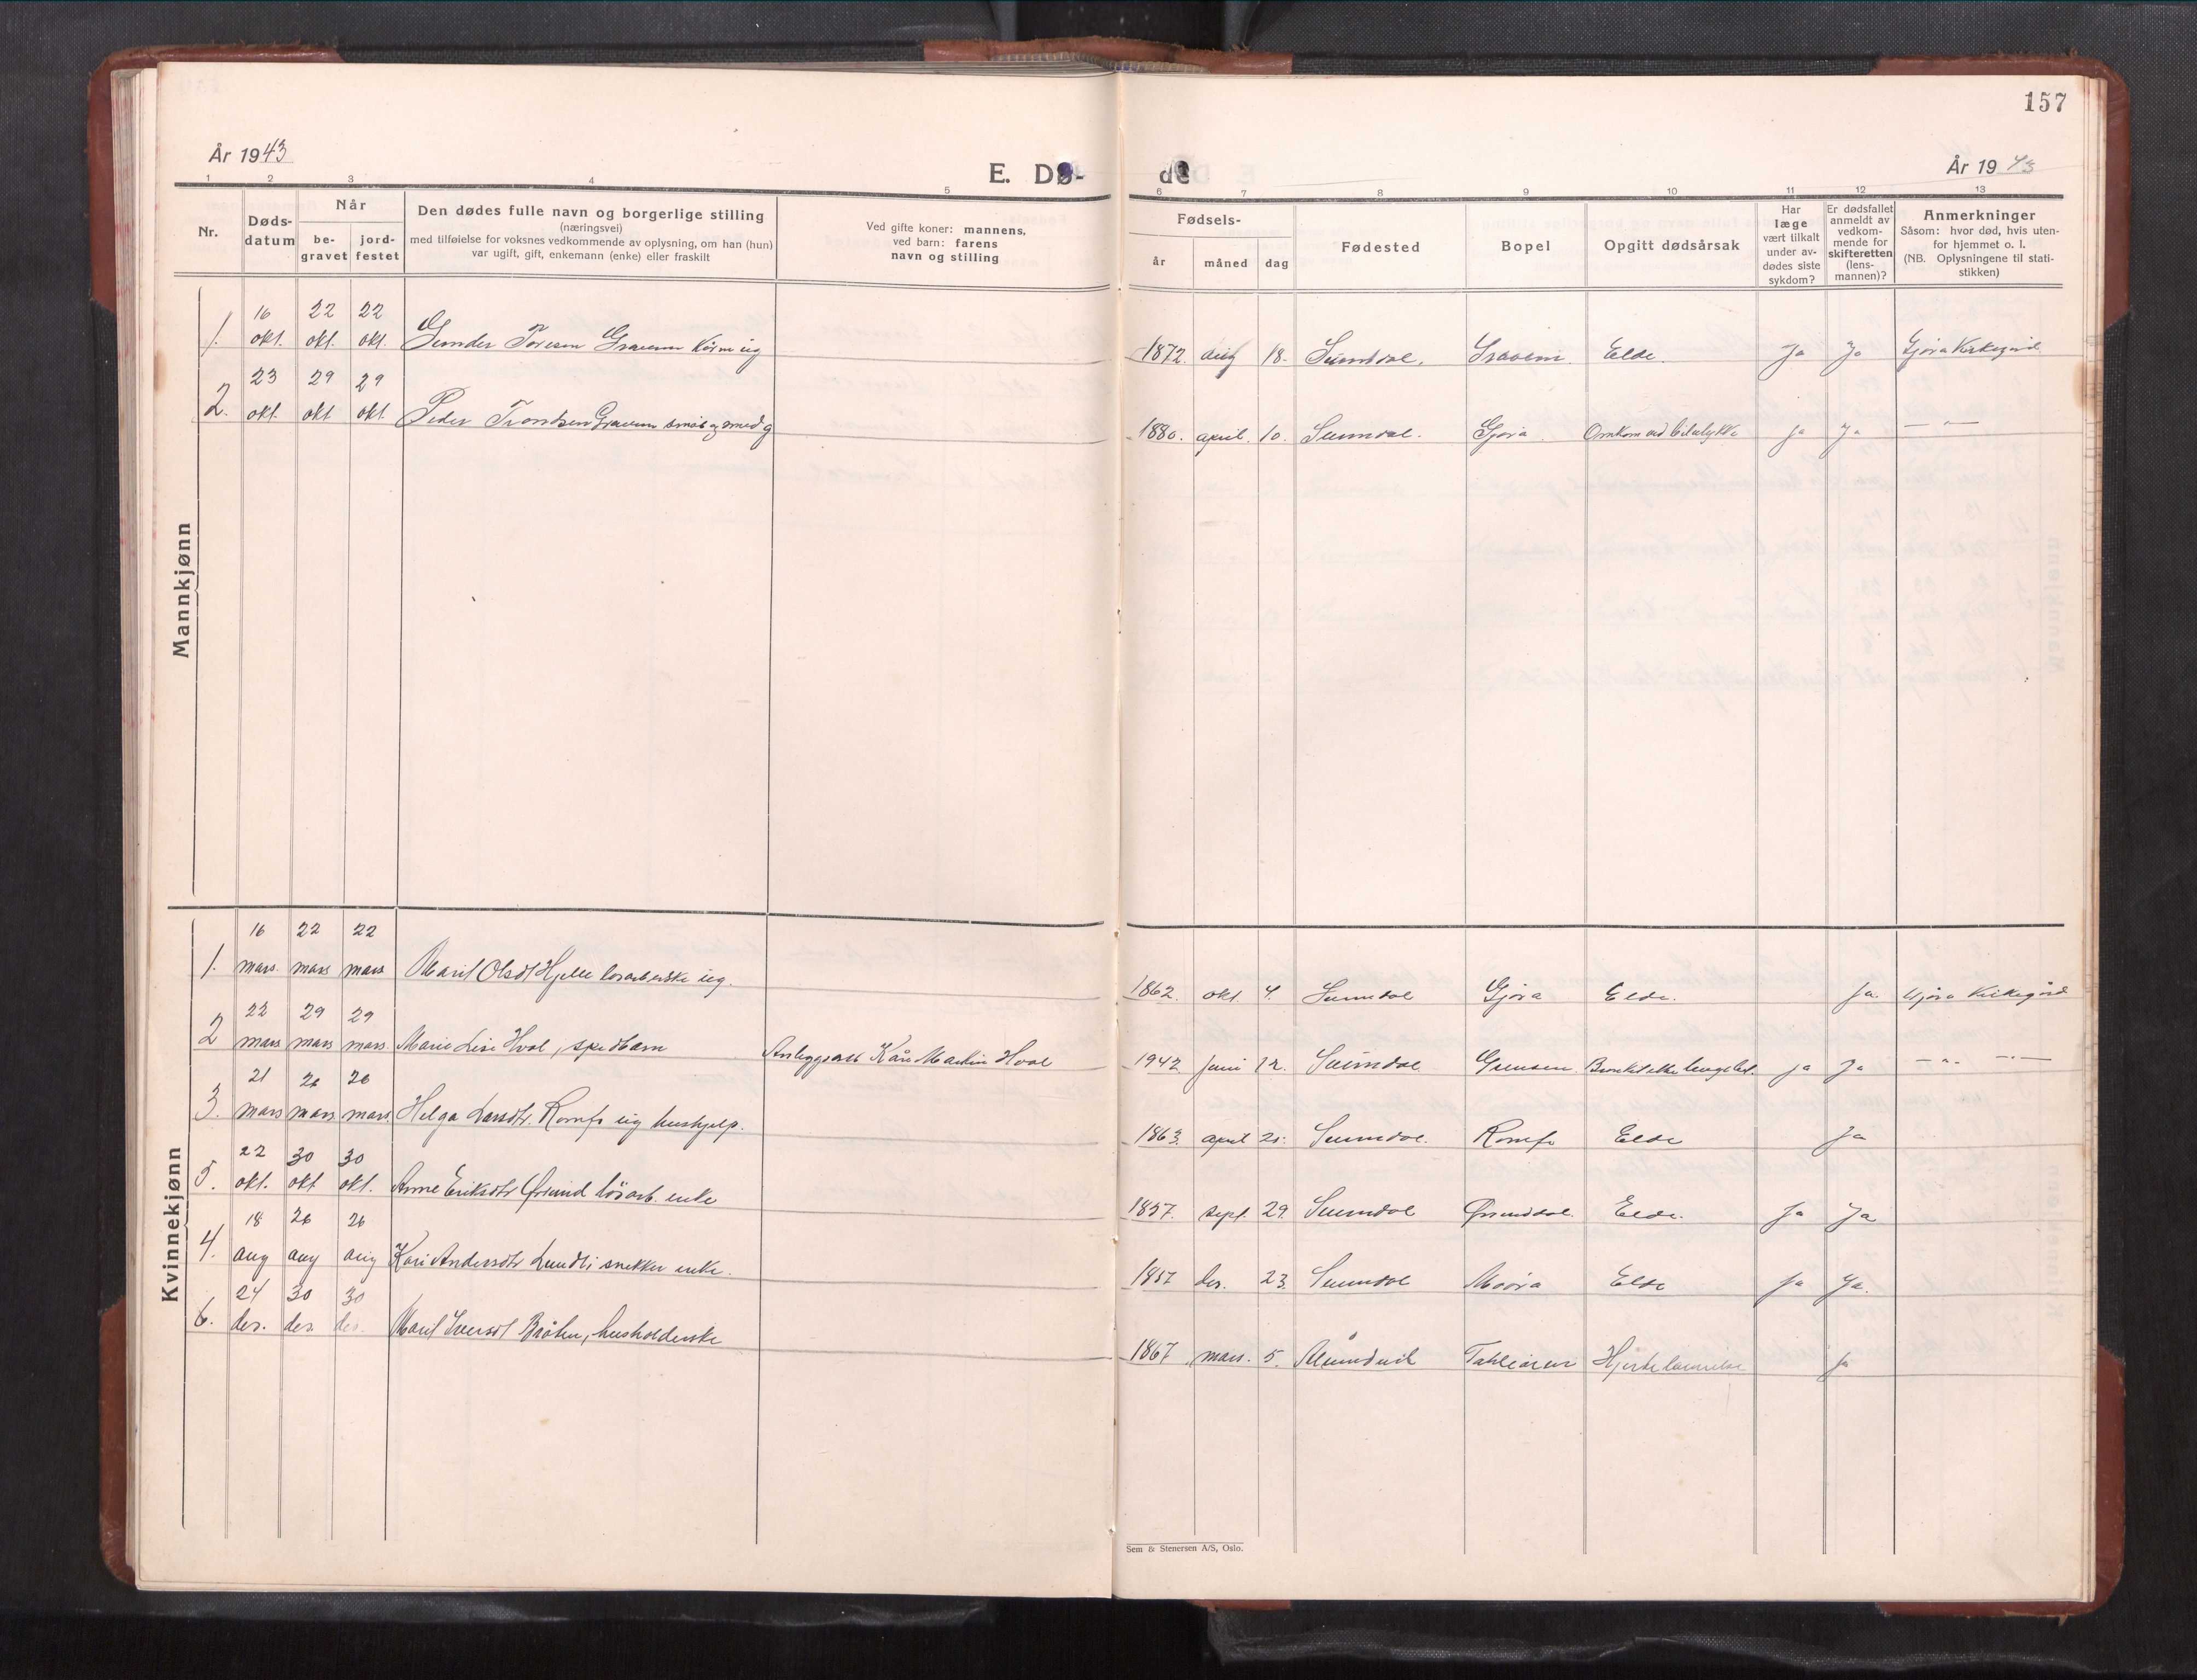 157
År 1943
E. Dø- de
År 1943
1 2 3 4 5 6 7 8 9 10 11 12 13
Nr.
Dødsdatum
Når
begravet
jordfestet
Den dødes fulle navn og borgerlige stilling
(næringsvei)
med tilføielse for voksnes vedkommende av oplysning, om han (hun)
var ugift, gift, enkemann (enke) eller fraskilt
Ved gifte koner: mannens,
ved barn: farens
navn og stilling
Fødsels-
år måned dag
Fødested
Bopel
Opgitt dødsårsak
Har
læge
vært tilkalt
under av-
dødes siste
sykdom?
Er dødsfallet
anmeldt av
vedkom-
mende for
skifteretten
(lens-
mannen)?
Anmerkninger
Såsom: hvor død, hvis uten-
for hjemmet o. l.
(NB. Oplysningene til stati-
stikken)
Mannkjønn
1. 16 okt. 22 okt. 22 okt. Toresen ug 1872 18. Sunndal. Elde. Ja Ja Gjøra Kirkegård
2. 23 okt. 29 okt 29 okt Peder smed g 1880. april. 10. Sunndal. Gjøra Omkom ved bilulykke Ja Ja — " —
Kvinnekjønn
1. 16 mars. 22 mars 22 mars Marit Olsdt Hjelle ug. 1862. okt 4. Sunndal Gjøra Elde. Ja. Gjøra Kirkegård
2 22 mars 29 mars 29 mars. Marie Lise Hval, spedbarn Anleggsarb Kåre Martin Hval 1942. juni 12. Sunndal Ja Ja — " — " —
3. 21 mars 26 mars 26 mars. Helga Larsdtr. Romfo ug hushjelp. 1863. april 21. Sunndal. Romfo Elde Ja
5. 22 okt. 30 okt 30 okt. Anne Eriksdtr enke 1857. sept. 29. Sunndal Elde. Ja Ja
4. 18 aug 26 aug 26 aug Kari Andersdtr Lundli snekker enke. 1857 des. 23. Sunndal Elde Ja Ja.
6. 24 des. 30 des. 30 des. Marit Iversdt husholderske 1867 mars. 5. Ålvundeid Ja
Sem & Stenersen A/S, Oslo.